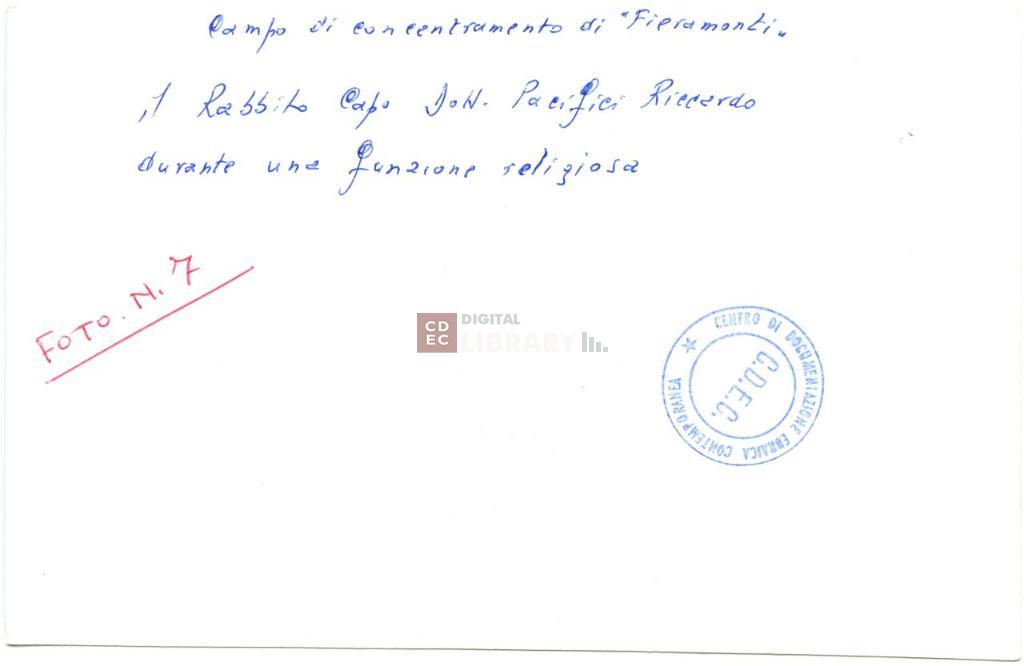 Campo di concentramento di "Fieramonti"
il Rabbito Capo Dott. Pacifici Riccardo
durante una funzione religiosa
FOTO. N. 7
CDEC DIGITAL LIBRARY
CENTRO DI DOCUMENTAZIONE EBRAICA CONTEMPORANEA
C.D.E.C.